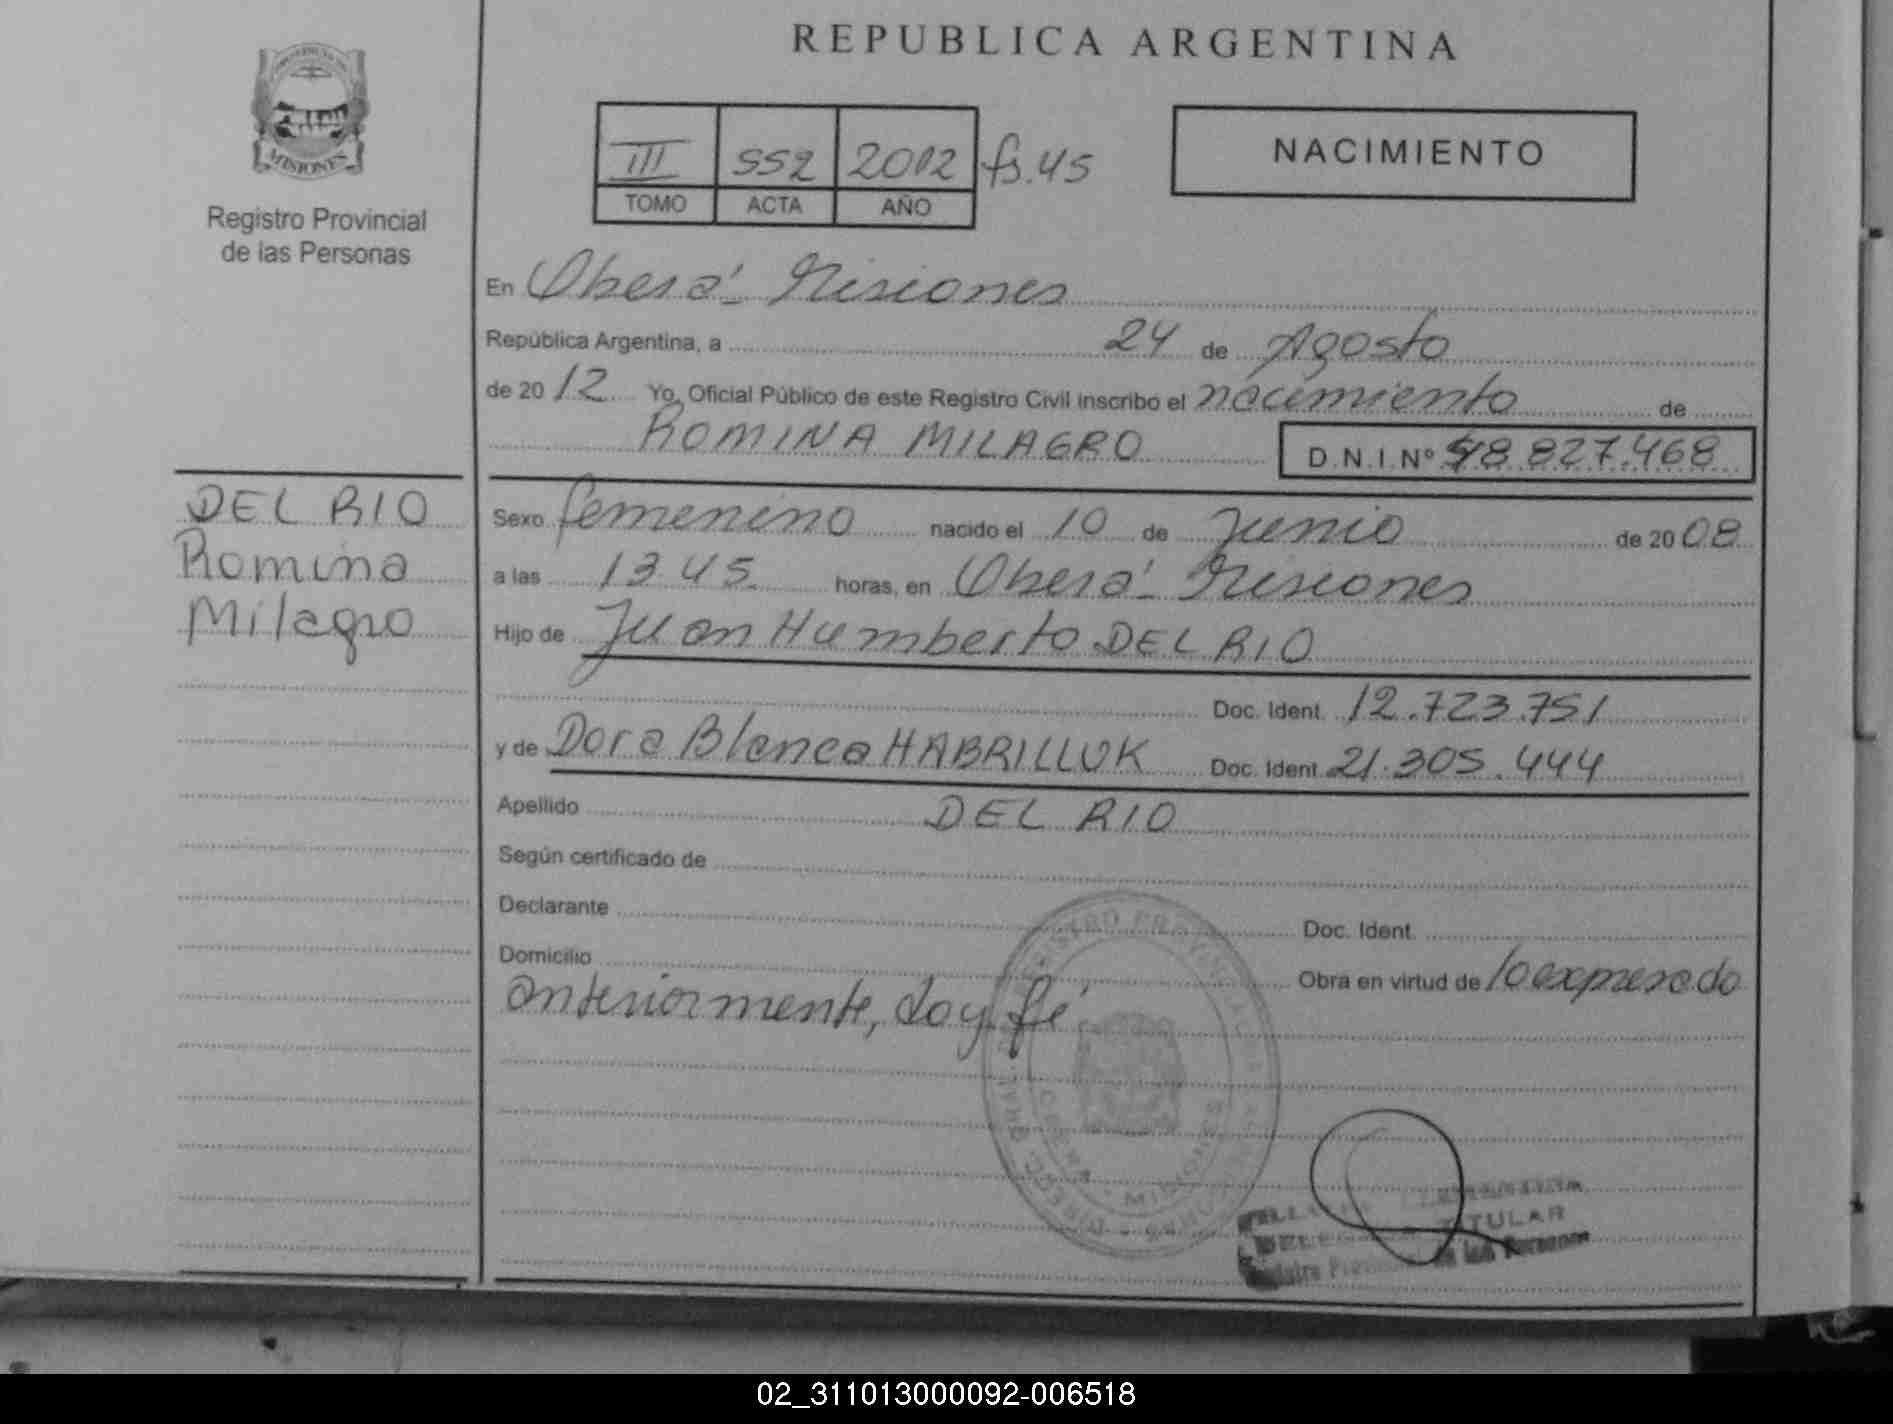 REPUBLICA ARGENTINA
MISIONES
Registro Provincial
de las Personas
III 552 2012 fs. 45
TOMO ACTA AÑO
NACIMIENTO
En Oberá - Misiones
República Argentina, a 24 de Agosto
de 20 12 Yo, Oficial Público de este Registro Civil inscribo el nacimiento de
ROMINA MILAGRO D.N.I.Nº 48.827.468
DEL RIO
Romina
Milagro
Sexo femenino nacido el 10 de Junio de 20 08
a las 13 45 horas, en Oberá - Misiones
Hijo de Juan Humberto DEL RIO
Doc. Ident. 12.723.751
y de Dora Blanca HABRILLUK Doc. Ident. 21.305.444
Apellido DEL RIO
Según certificado de
Declarante
Doc. Ident.
Domicilio
Obra en virtud de lo expresado
anteriormente, doy fé
TITULAR
de las Personas
02_311013000092-006518